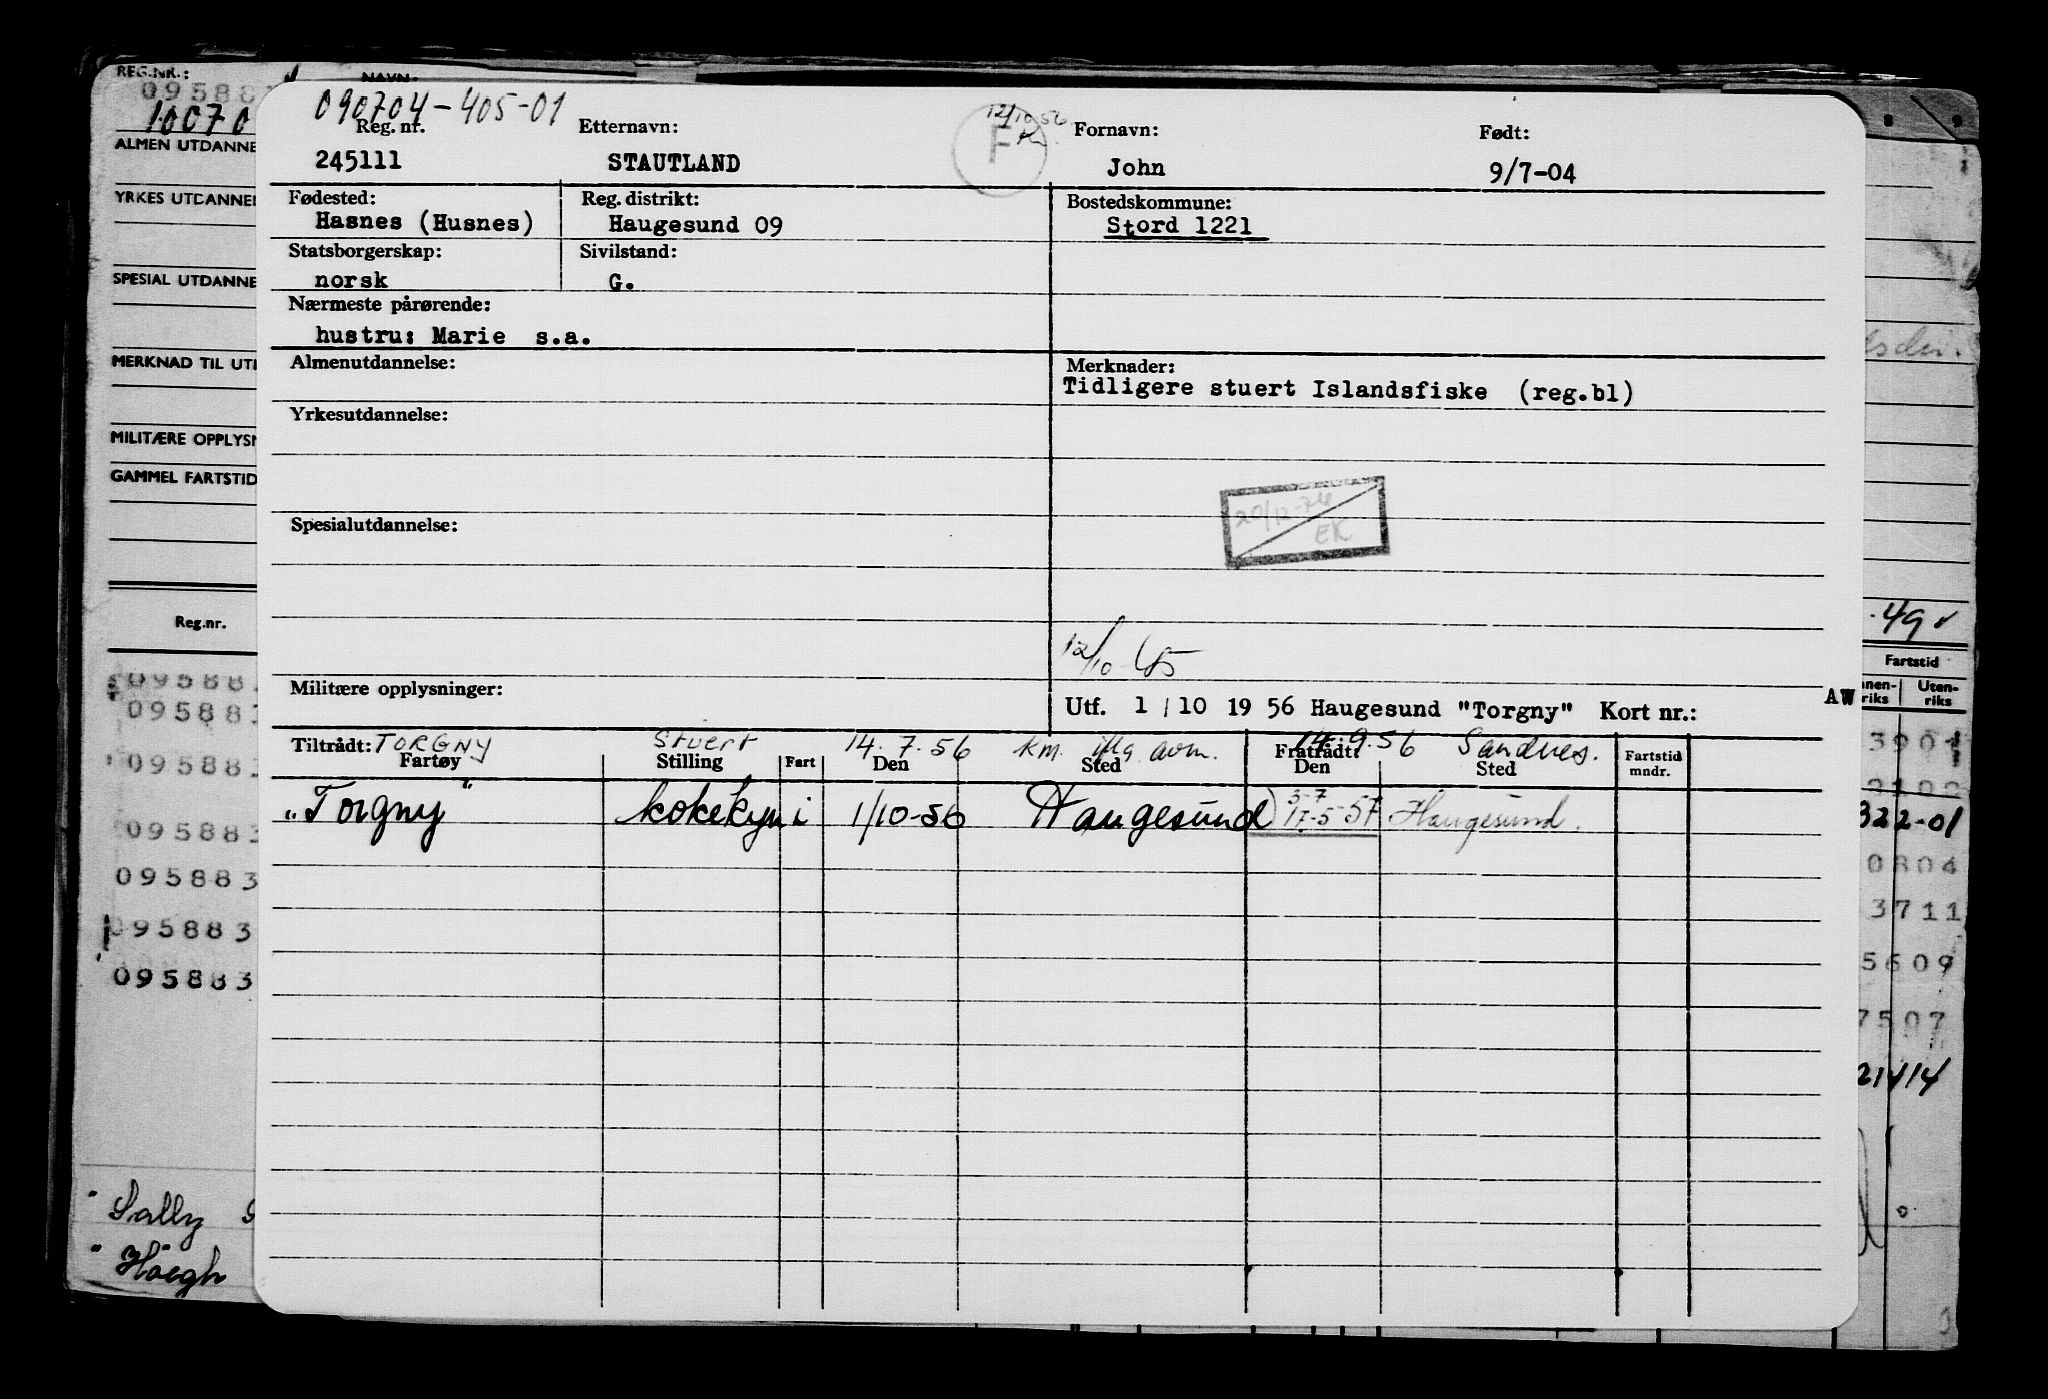 REG.NR.:
NAVN:
10070
ALMEN UTDANNE
YRKES UTDANNEL
SPECIAL UTDANNE
MERKNAD TIL UT
MILITÆRE OPPLYSN
GAMMEL FARTSTID
Reg.nr.
095883
095883
095883
095883
095883
095883
095883
Sally
Høegh
090704-405-01
Reg. nr. Etternavn: F 12/10 56 Fornavn: Født:
245111 STAUTLAND John 9/7-04
Fødested: Reg. distrikt: Bostedskommune:
Hasnes (Husnes) Haugesund 09 Stord 1221
Statsborgerskap: Sivilstand:
norsk G.
Nærmeste pårørende:
hustru: Marie s.a.
Almenutdannelse: Merknader:
Tidligere stuert Islandsfiske (reg.bl)
Yrkesutdannelse:
20/12-74
EK
Spesialutdannelse:
12/10
Militære opplysninger:
Utf. 1/10 1956 Haugesund "Torgny" Kort nr.: AW
Tiltrådt: TORGNY stuert 14.7.56 km. avm. Fratrådt: 14.9.56 Sandnes.
Fartøy Stilling Fart Den Sted Den Sted Fartstid mndr.
"Torgny" kokekyn i 1/10-56 Haugesund 3-7 17-5-57 Haugesund.
49
Fartstid
Uten-
riks riks
322-01
0804
3711
5609
7507
21414